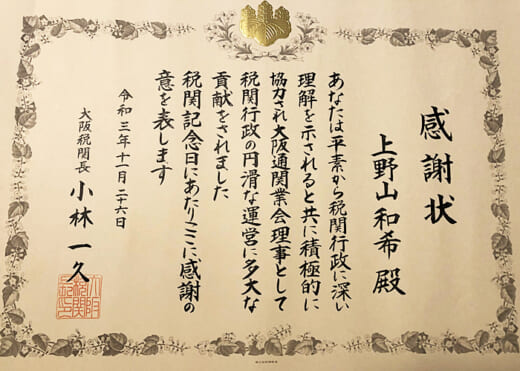 感謝状
上野山和希 殿
あなたは平素から税関行政に深い
理解を示されると共に積極的に
協力され大阪通関業会理事として
税関行政の円滑な運営に多大な
貢献をされました
税関記念日にあたりここに感謝の
意を表します
令和三年十一月二十六日
大阪税関長 小林一久